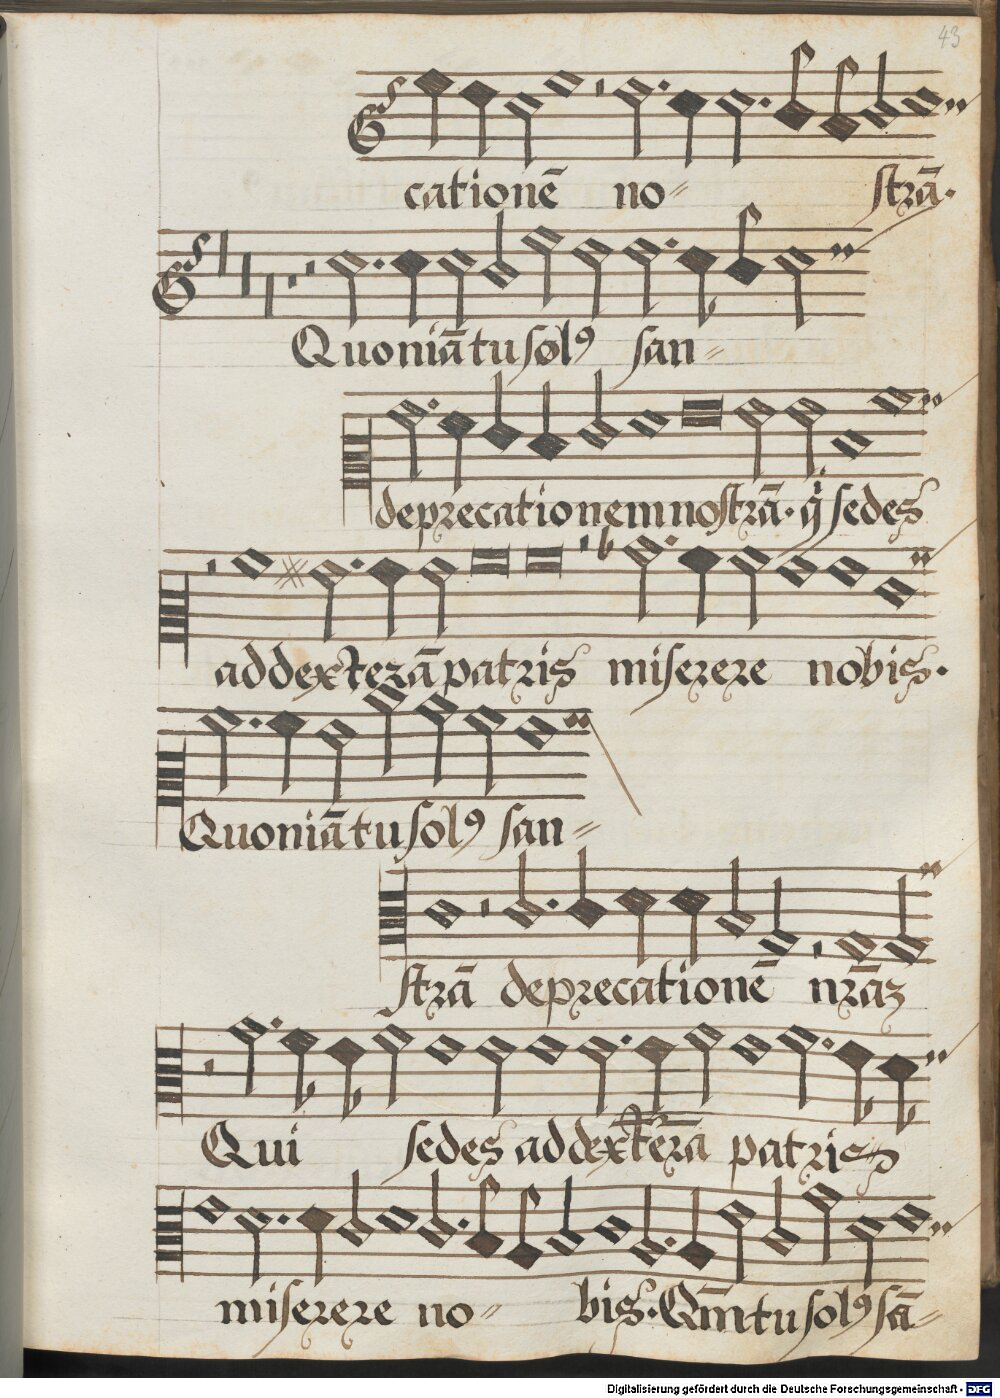 43
cationē no- strā.
Quoniā tu solꝰ san-
deprecationem nostrā. qͥ sedes
ad dexterā patris miserere nobis.
Quoniā tu solꝰ san-
strā deprecationē nrāꝫ
Qui sedes ad dexterā patris
miserere no- bis. Qm̄ tu solꝰ sā-
Digitalisierung gefördert durch die Deutsche Forschungsgemeinschaft - DFG